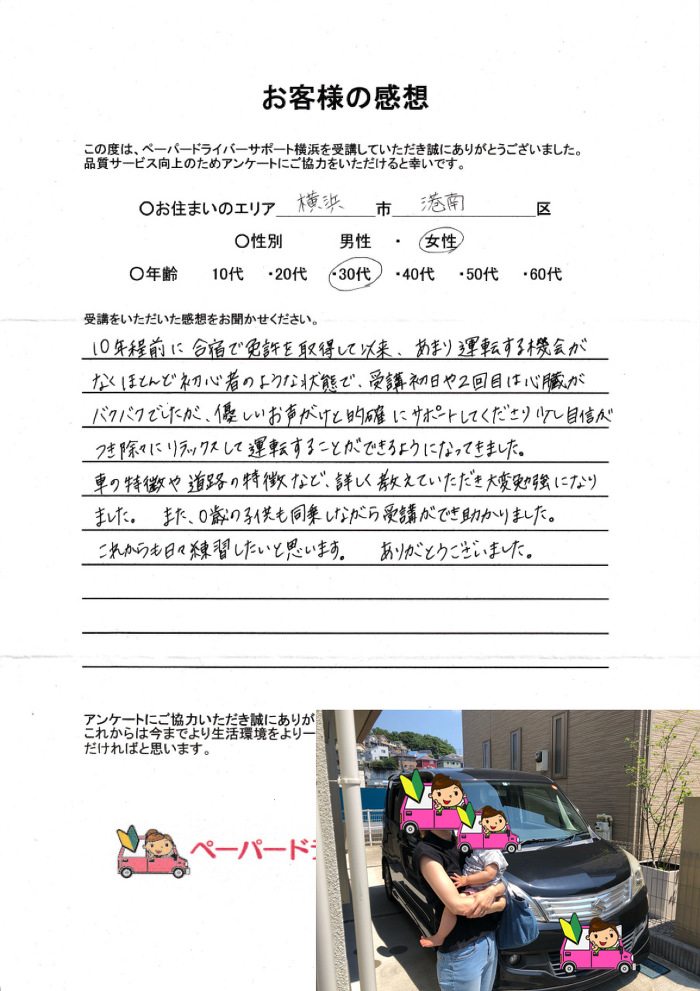 お客様の感想
この度は、ペーパードライバーサポート横浜を受講していただき誠にありがとうございました。
品質サービス向上のためアンケートにご協力をいただけると幸いです。
〇お住まいのエリア 横浜 市 港南 区
〇性別 男性 ・ 女性
〇年齢 10代 ・20代 ・30代 ・40代 ・50代 ・60代
受講をいただいた感想をお聞かせください。
10年程前に合宿で免許を取得して以来、あまり運転する機会が
なくほとんど初心者のような状態で、受講初日や2回目は心臓が
バクバクでしたが、優しいお声がけと的確にサポートしてくださり少し自信が
つき除々にリラックスして運転することができるようになってきました。
車の特徴や道路の特徴など、詳しく教えていただき大変勉強になり
ました。 また、0歳の子供も同乗しながら受講ができ助かりました。
これからも日々練習したいと思います。 ありがとうございました。
アンケートにご協力いただき誠にありが
これからは今までより生活環境をより一
だければと思います。
ペーパードラ